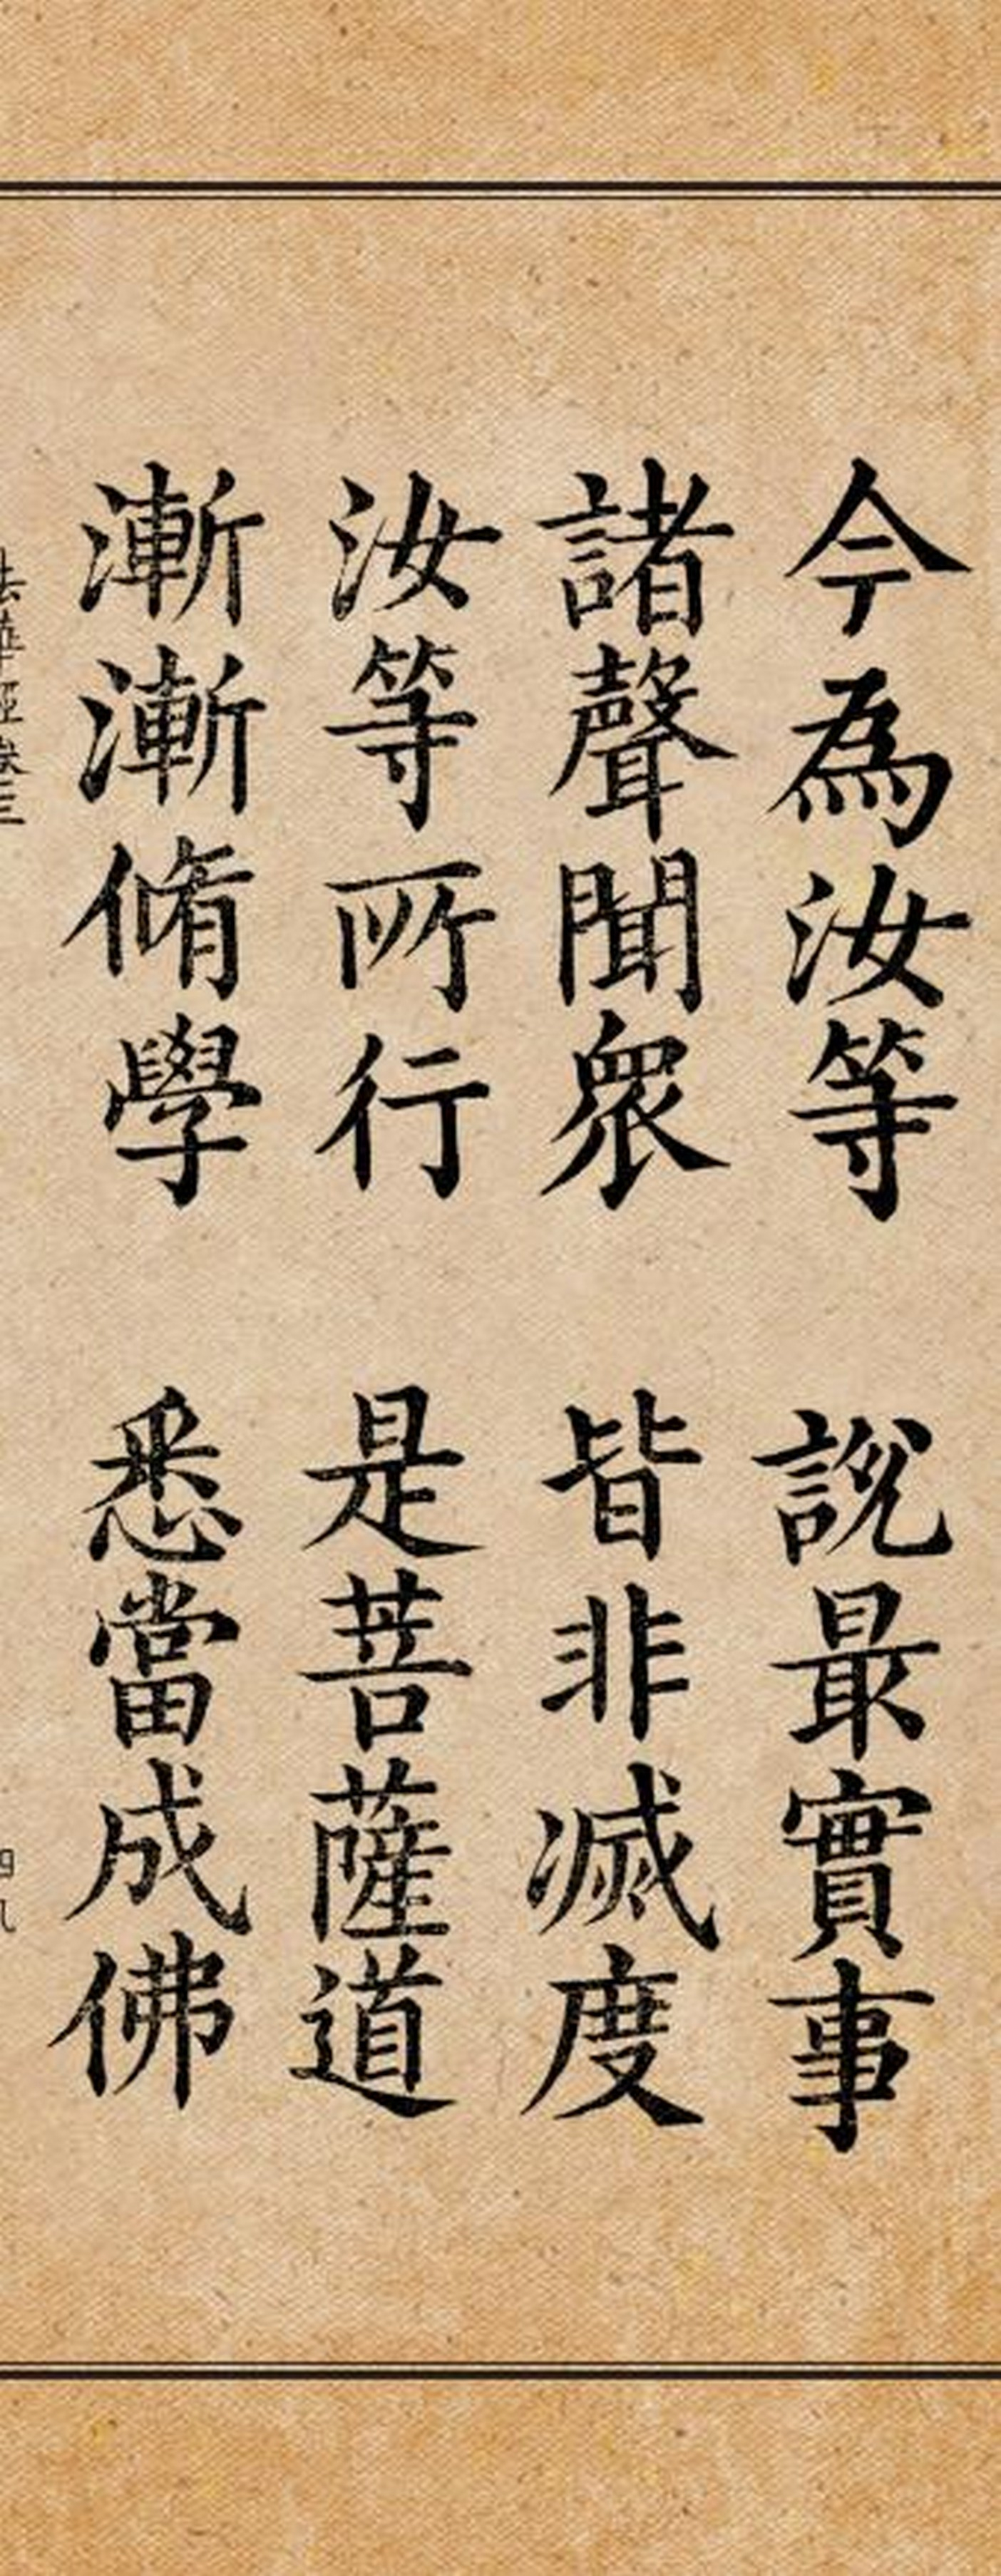 今為汝等 說最實事
諸聲聞眾 皆非滅度
汝等所行 是菩薩道
漸漸脩學 悉當成佛
法華經卷三 四九